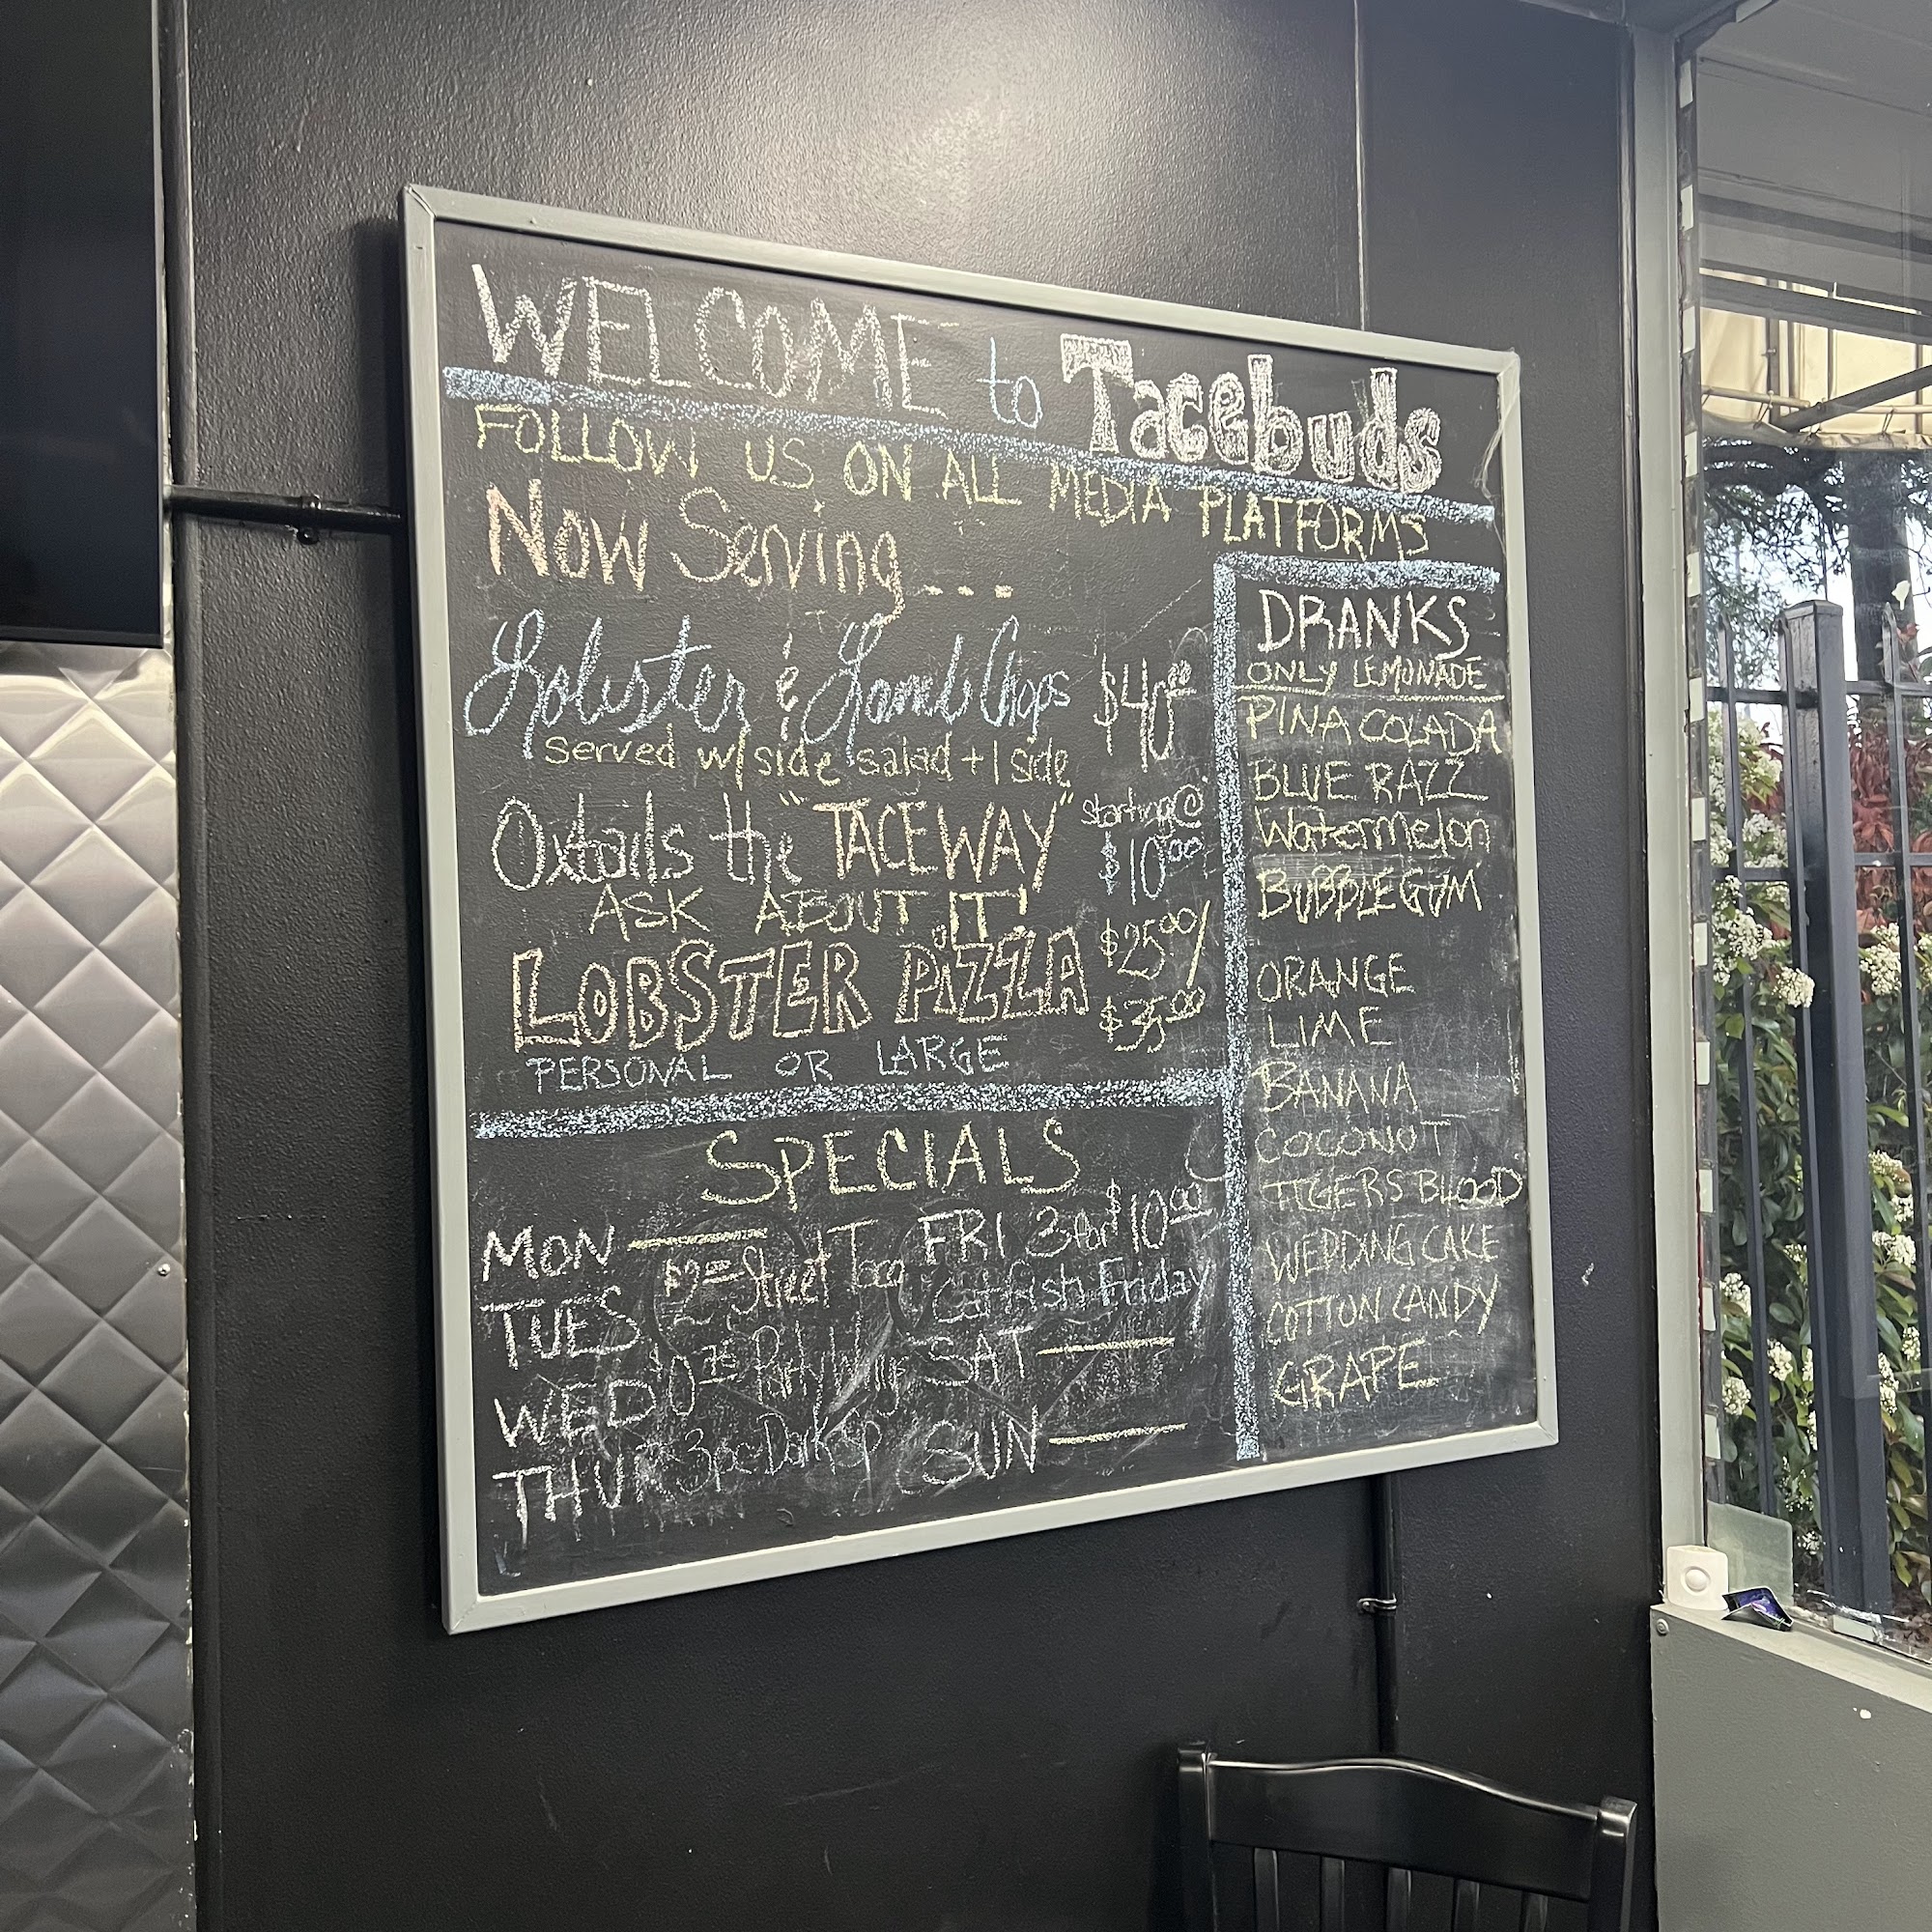 WELCOME to Tacebuds
FOLLOW US ON ALL MEDIA PLATFORMS
Now Serving...
Lobster & Lamb Chops $40.00
served w/ side salad + 1 side
Oxtails the "TACEWAY" starting @ $10.00
ASK ABOUT IT!
LOBSTER PIZZA $25.00/
$35.00
PERSONAL OR LARGE
SPECIALS
MON
TUES $2 Street Taco
WED Party Wings
THUR 3pc Dark
FRI 3 for $10.00
Catfish Friday
SAT
SUN
DRANKS
ONLY LEMONADE
PINA COLADA
BLUE RAZZ
Watermelon
BUBBLEGUM
ORANGE
LIME
BANANA
COCONUT
TIGERS BLOOD
WEDDING CAKE
COTTON CANDY
GRAPE